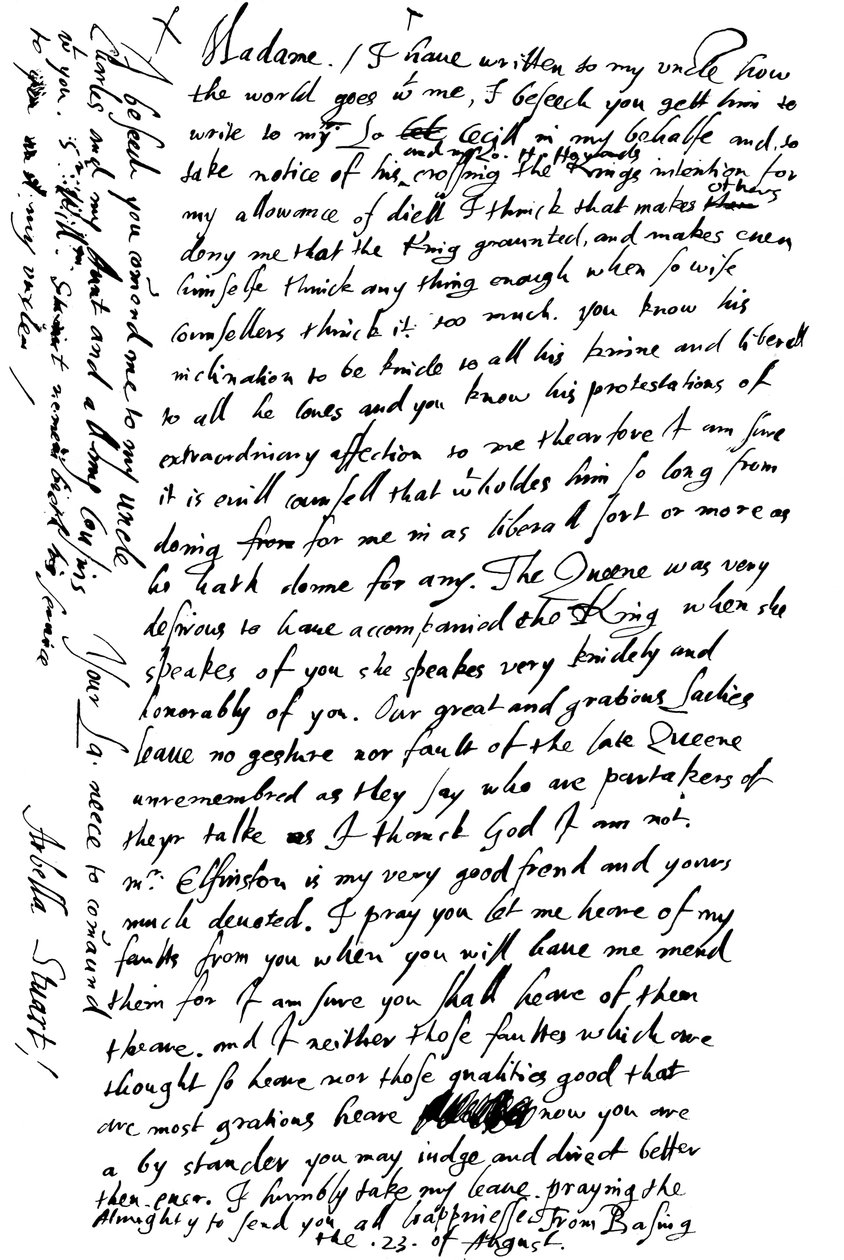 Madame. / I haue written to my uncle how
the world goes wt me, I beseech you gett him to
write to my Lo Cecill in my behalfe and to
and my Lo. H. Howards
take notice of his crossing the Kings intention for
others
my allowance of diett I thinck that makes them
deny me that the King graunted, and makes euen
himselfe thinck any thing enough when so wise
counsellers thinck it too much. you know his
inclination to be kinde to all his kinne and liberall
to all he loues and you know his protestations of
extraordinary affection to me thearfore I am sure
it is euill counsell that wtholdes him so long from
doing from for me in as liberall sort or more as
he hath donne for any. The Queene was very
desirous to haue accompanied the King when she
speakes of you she speakes very kindely and
honorably of you. Our great and gratious Ladies
leaue no gesture nor fault of the late Queene
unremembred as they say who are partakers of
theyr talke as I thanck God I am not.
mr. Elfinston is my very good frend and yours
much deuoted. I pray you let me heare of my
faults from you when you will haue me mend
them for I am sure you shall heare of them
theare. and I neither those faultes which are
thought so heare nor those qualities good that
are most gratious heare now you are
a by stander you may iudge and direct better
then euer. I humbly take my leaue praying the
Almighty to send you all happinesse From Basing
the .23. of August.
I beseech you comend me to my uncle
Charles and my Aunt and a little Cousins
wt you. Sr. Will. Stewart remembreth his seruice
to you and my unckle /
Your La. neece to comaund
Arbella Stuart /